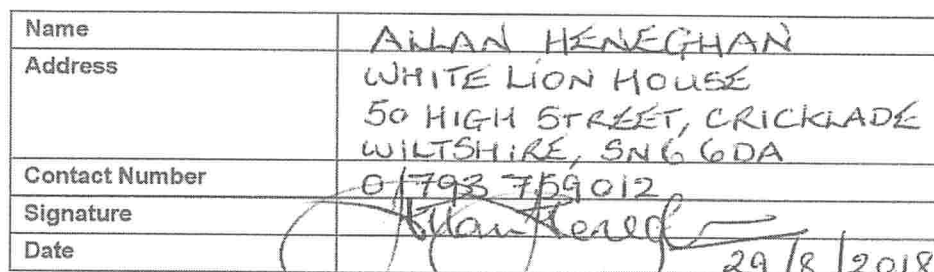 Name AILAN HENEGHAN
Address WHITE LION HOUSE
50 HIGH STREET, CRICKLADE
WILTSHIRE, SN6 6DA
Contact Number 01793 759012
Signature
Date 29/8/2018